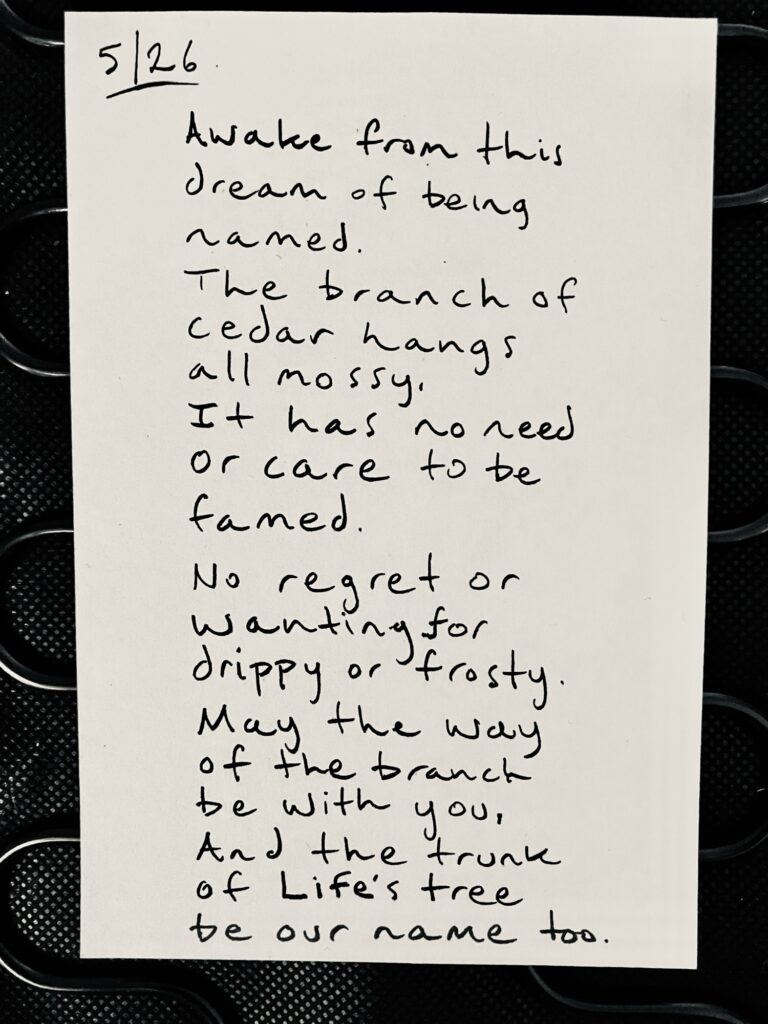 5/26
Awake from this
dream of being
named.
The branch of
cedar hangs
all mossy.
It has no need
or care to be
famed.
No regret or
wanting for
drippy or frosty.
May the way
of the branch
be with you,
And the trunk
of Life's tree
be our name too.